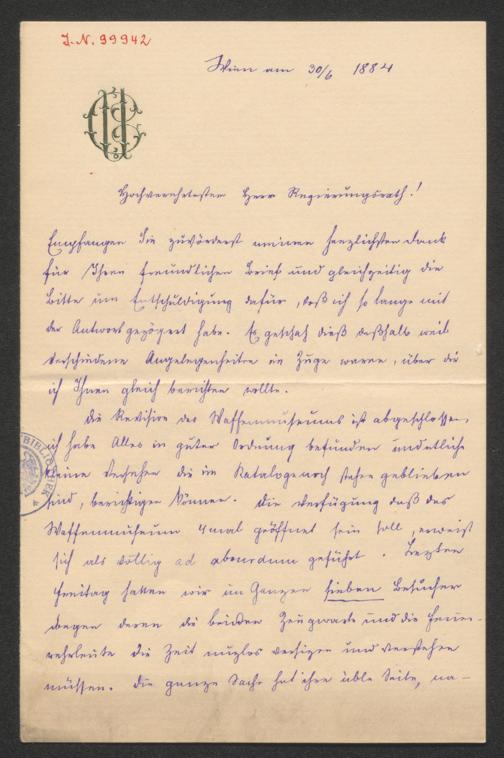 I.N. 99942
Wien am 30/6 1884
Hochverehrtester Herr Regierungsrath!
Empfangen Sie zuvörderst meinen herzlichsten Dank
für Ihren freundlichen Brief und gleichzeitig die
Bitte um Entschuldigung dafür, daß ich so lange mit
der Antwort gezögert habe. Es geschah dieß deßhalb weil
verschiedene Angelegenheiten im Zuge waren, über die
ich Ihnen gleich berichten wollte.
Die Revision des Waffenmuseums ist abgeschlossen,
ich habe Alles in guter Ordnung befunden und etliche
kleine Versehen die im Kataloge noch stehen geblieben
sind, berichtigen können. Die Verfügung daß das
Waffenmuseum 4mal geöffnet sein soll, erweist
sich als völlig ad absurdum geführt. Lezten
Freitag hatten wir im Ganzen sieben Besucher
wegen deren die beiden Zeugwarte und die Feuer-
wehrleute die Zeit nuzlos versizen und verstehen
müssen. Die ganze Sache hat ihre üble Seite, na-
BIBLIOTHEK